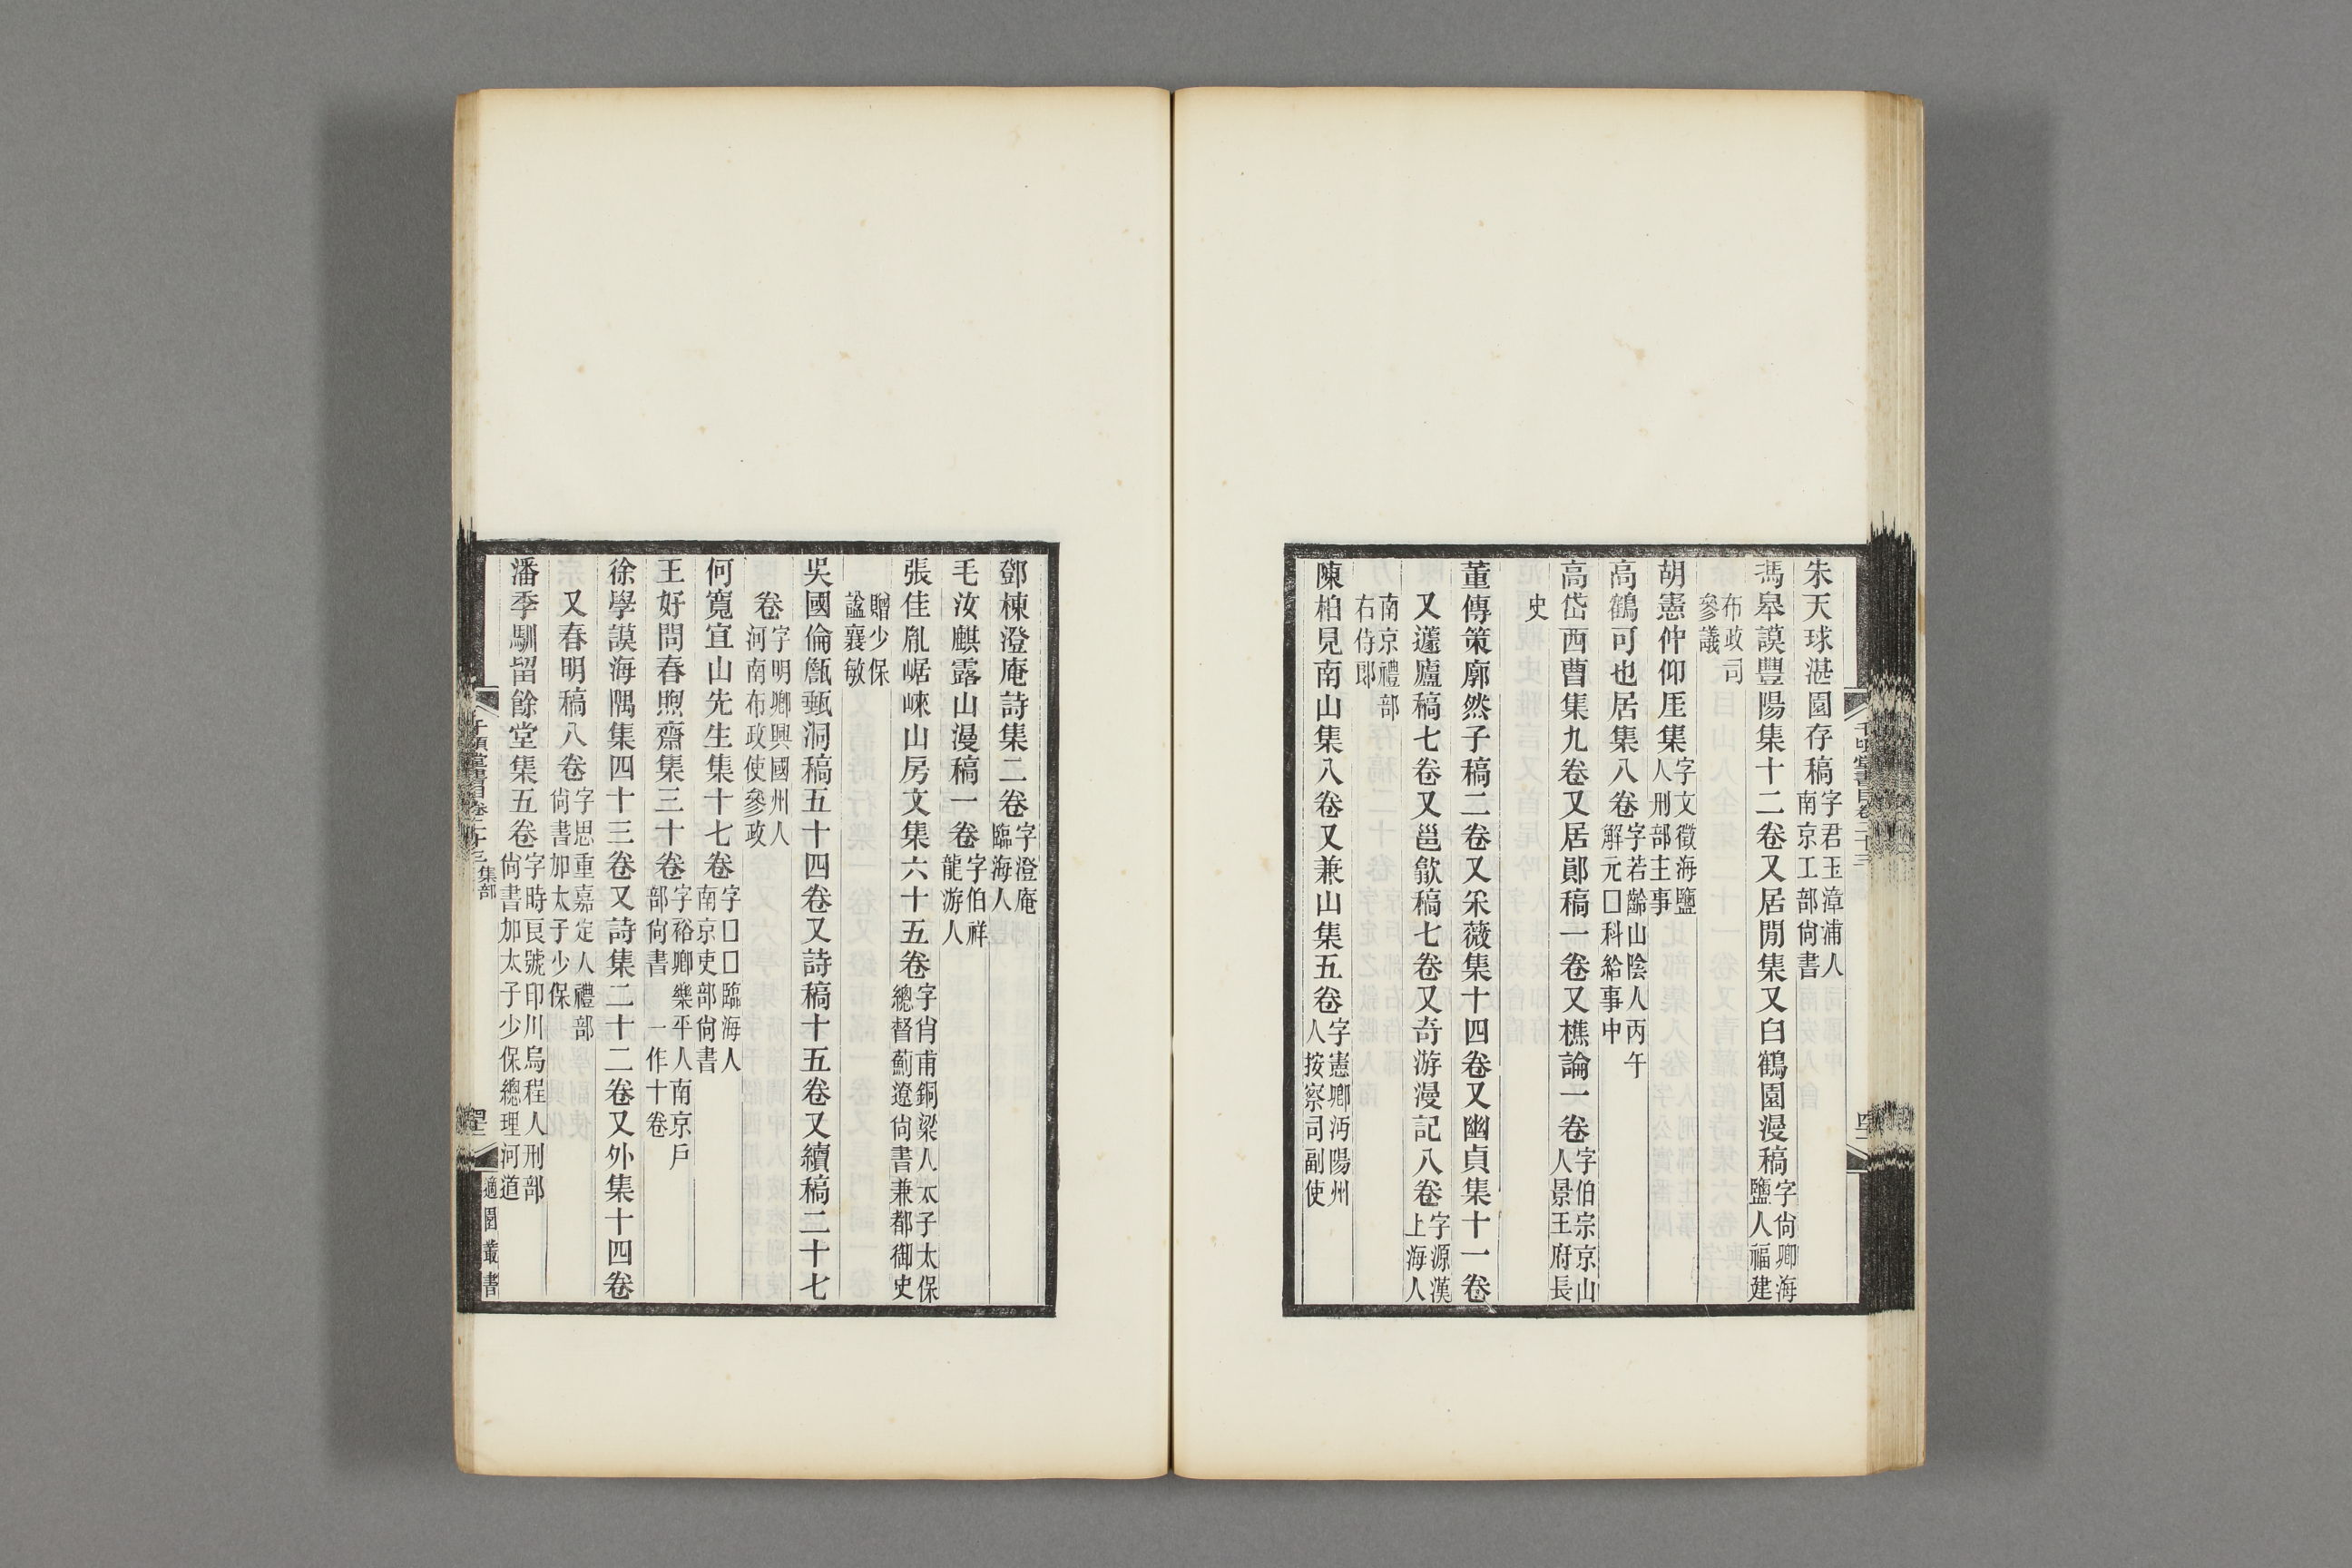 朱天球湛園存稿字君玉漳浦人南京工部尙書
馮皋謨豐陽集十二卷又居閒集又白鶴園漫稿字尙卿海鹽人福建
布政司參議
胡憲仲仰厓集字文徵海鹽人刑部主事
高鶴可也居集八卷字若齡山陰人丙午解元囗科給事中
高岱西曹集九卷又居鄖稿一卷又樵論一卷字伯宗京山人景王府長
史
董傳策廓然子稿二卷又采薇集十四卷又幽貞集十一卷
又蘧廬稿七卷又邕歈稿七卷又奇游漫記八卷字源漢上海人
南京禮部右侍郎
陳柏見南山集八卷又兼山集五卷字憲卿沔陽州人按察司副使
千頃堂書目卷二十三
鄧棟澄庵詩集二卷字澄庵臨海人
毛汝麒露山漫稿一卷字伯祥龍游人
張佳胤崌崍山房文集六十五卷字肖甫銅梁人太子太保總督薊遼尙書兼都御史
贈少保諡襄敏
吳國倫甔甀洞稿五十四卷又詩稿十五卷又續稿二十七
卷字明卿興國州人河南布政使參政
何寬宜山先生集十七卷字囗囗臨海人南京吏部尙書
王好問春煦齋集三十卷字裕卿樂平人南京戶部尙書 一作十卷
徐學謨海隅集四十三卷又詩集二十二卷又外集十四卷
又春明稿八卷字思重嘉定人禮部尙書加太子少保
潘季馴留餘堂集五卷字時良號印川烏程人刑部尙書加太子少保總理河道
千頃堂書目卷二十三 集部
適園叢書